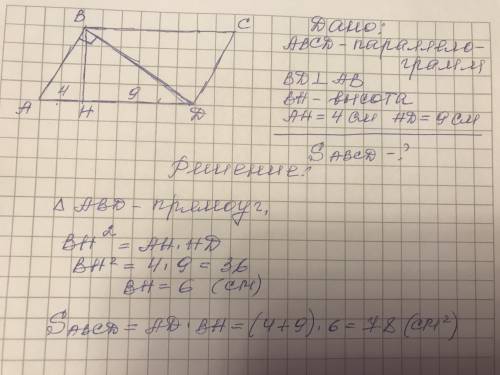 B
C
4
9
A
H
D
Дано:
ABCD - параллело-
грамм
BD ⊥ AB
BH - высота
AH = 4 см HD = 9 см
SABCD - ?
Решение:
△ ABD - прямоуг,
BH² = AH · HD
BH² = 4 · 9 = 36
BH = 6 (см)
SABCD = AD · BH = (4+9) · 6 = 78 (см²)